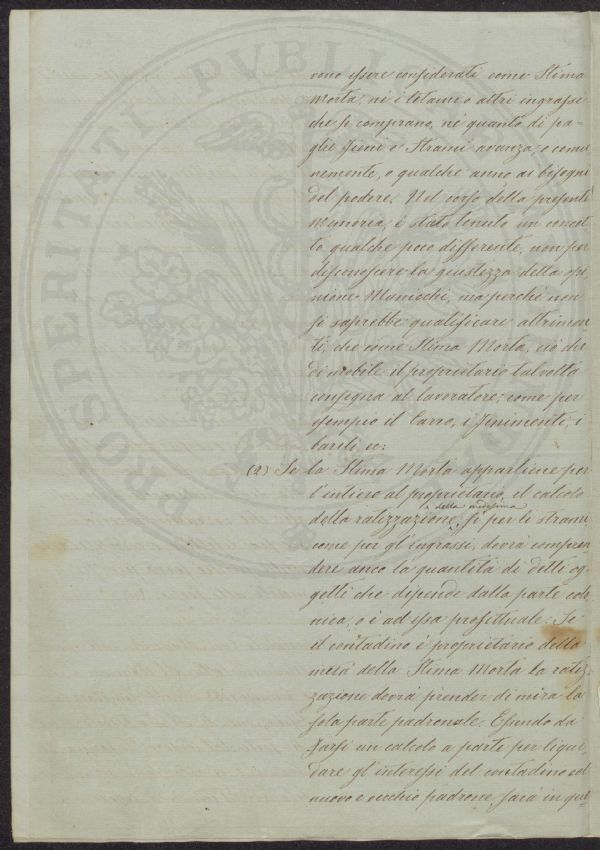 vono essere considerati come Stima
Morta, nè i letami o altri ingrassi
che si comprano, nè quanto di pa-
glie fieni o Strami avanza, o comu
nemente, o qualche anno ai bisogni
del podere. Nel corso della presente
Memoria, è stato tenuto un concet
to qualche poco differente, non per
disconoscere la giustezza della opi
nione Manicchi, ma perchè non
si saprebbe qualificare altrimen
ti, che come Stima Morta, ciò che
di mobile il proprietario talvolta
consegna al lavoratore; come per
esempio il Carro, i finimenti, i
barili ec:
(2) Se la Stima Morta appartiene per
l'intiero al proprietario, il calcolo
della ratizzazione della medesima sì per li strami
come per gl'ingrassi, dovrà compren
dere anco la quantità di detti og
getti che dipende dalla parte colo
nica, o è ad essa profittuale. Se
il contadino è proprietario della
metà della Stima Morta la ratiz-
zazione dovrà prender di mira la
sola parte padronale. Essendo da
farsi un calcolo a parte per liqui
dare gl'interessi del contadino col
nuovo e vecchio padrone, sarà in que
PROSPERITATI PVBLIC